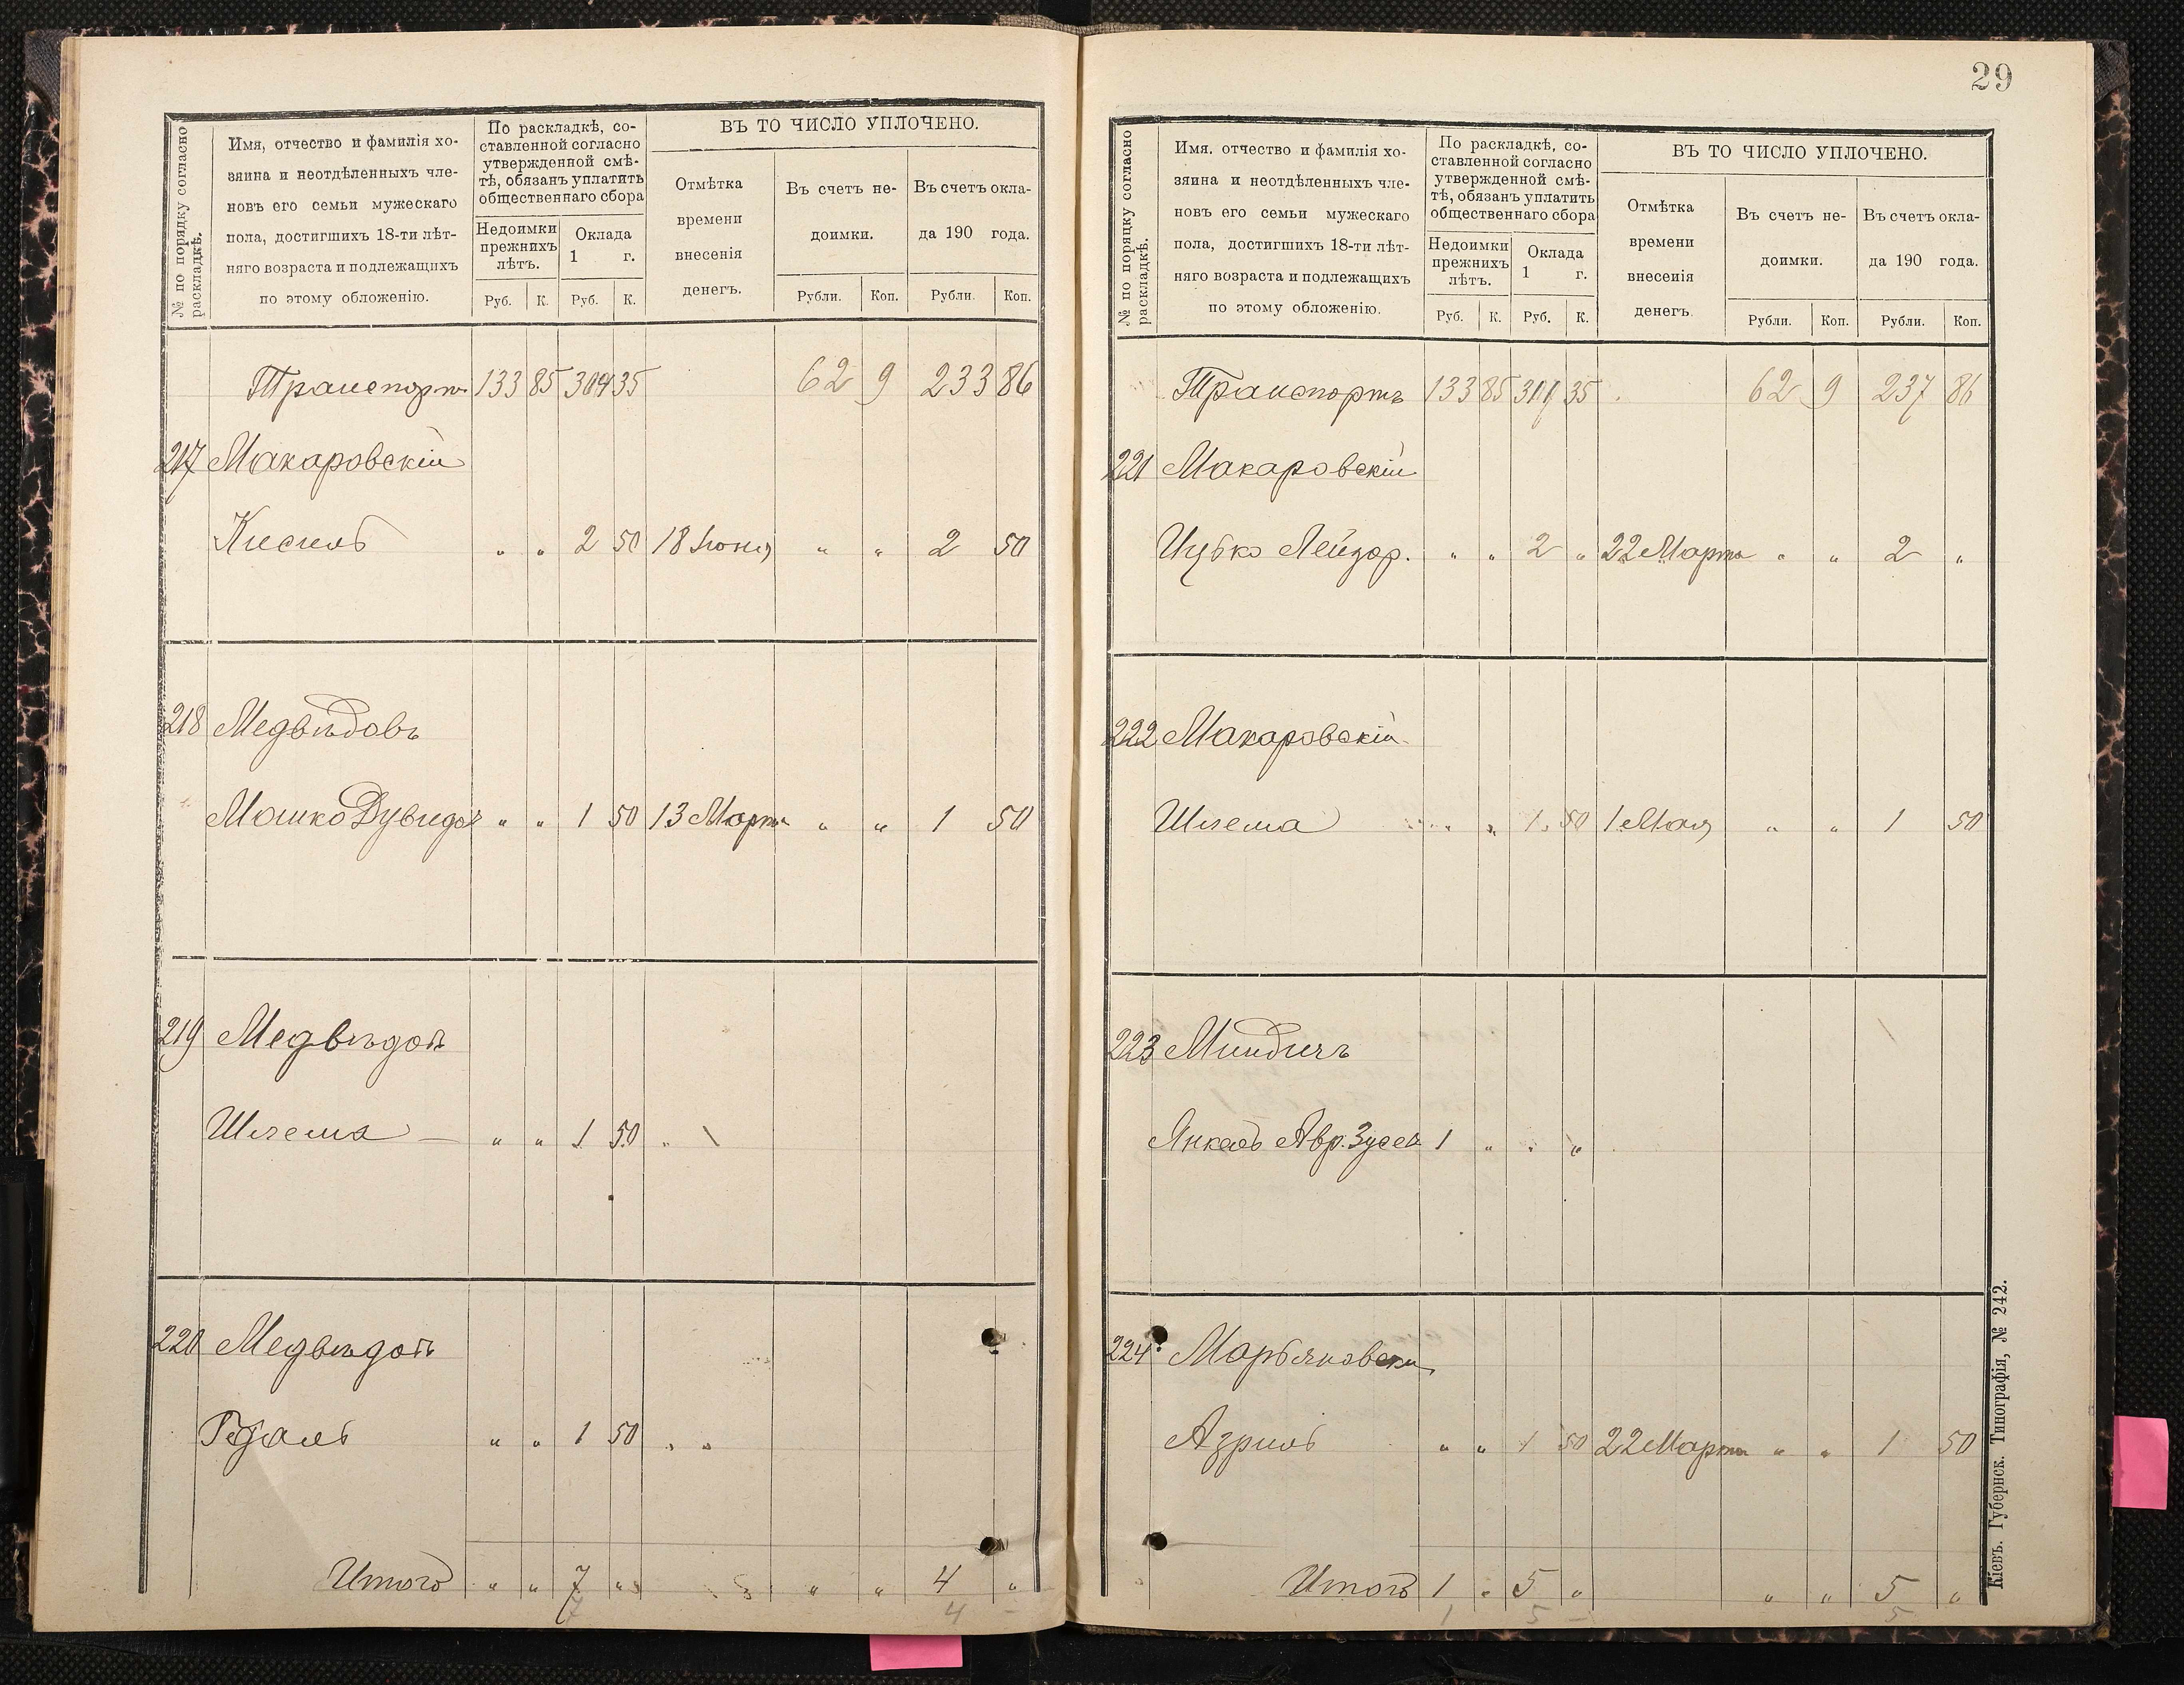 № по порядку согласно раскладкѣ.
Имя, отчество и фамилія хо-
зяина и неотдѣленныхъ чле-
новъ его семьи мужескаго
пола, достигшихъ 18-ти лѣт-
няго возраста и подлежащихъ
по этому обложенію.
По раскладкѣ, со-
ставленной согласно
утвержденной смѣ-
тѣ, обязанъ уплатить
общественнаго сбора
Недоимки
прежнихъ
лѣтъ.
Оклада
1 г.
Руб. К. Руб. К.
ВЪ ТО ЧИСЛО УПЛОЧЕНО.
Отмѣтка
времени
внесенія
денегъ.
Въ счетъ не-
доимки.
Въ счетъ окла-
да 190 года.
Рубли. Коп. Рубли. Коп.
Транспортъ 133 85 304 35 62 9 233 86
217 Макаровскій
Кисиль " " 2 50 18 Іюня " " 2 50
218 Медвѣдовъ
Мошко Дувидов " " 1 50 13 Марта " " 1 50
219 Медвѣдовъ
Шлема — " " 1 50
220 Медвѣдовъ
Гедаль " " 1 50 " "
Итого " " 7 " " " 4 "
7 4 -
29
№ по порядку согласно раскладкѣ.
Имя. отчество и фамилія хо-
зяина и неотдѣленныхъ чле-
новъ его семьи мужескаго
пола, достигшихъ 18-ти лѣт-
няго возраста и подлежащихъ
по этому обложенію.
По раскладкѣ, со-
ставленной согласно
утвержденной смѣ-
тѣ, обязанъ уплатить
общественнаго сбора
Недоимки
прежнихъ
лѣтъ.
Оклада
1 г.
Руб. К. Руб. К.
ВЪ ТО ЧИСЛО УПЛОЧЕНО.
Отмѣтка
времени
внесенія
денегъ.
Въ счетъ не-
доимки.
Въ счетъ окла-
да 190 года.
Рубли. Коп. Рубли. Коп.
Транспортъ 133 85 311 35 62 9 237 86
221 Макаровскій
Ицько Лейзор. " " 2 " 22 Марта " " 2 "
222 Макаровскій
Шлема " " 1 50 1 Мая " " 1 50
223 Миндичъ
Янкель Авр. Зусев 1 " " "
224 Марьяновски
Азриль " " 1 50 22 Марта " " 1 50
Итого 1 " 5 " " " 5 "
1 5 - 5
Кіевъ. Губернск. Типографія, № 242.